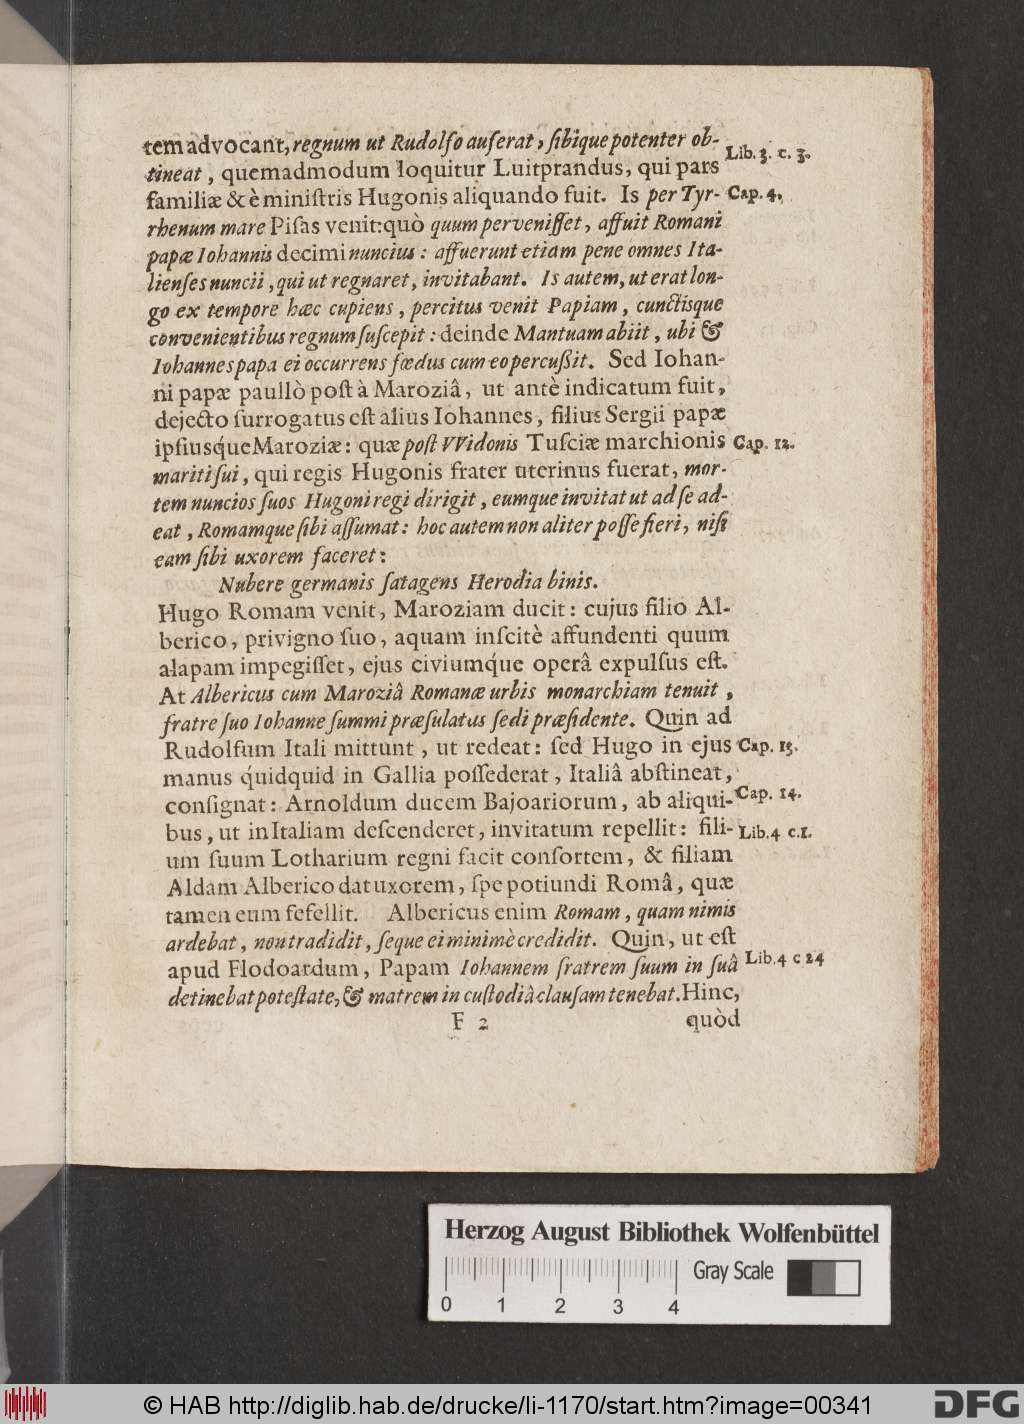 tem advocant, regnum ut Rudolfo auferat, sibique potenter ob-
Lib. 3. c. 3.
tineat, quemadmodum loquitur Luitprandus, qui pars
familiæ & è ministris Hugonis aliquando fuit. Is per Tyr-
Cap. 4.
rhenum mare Pisas venit: quò quum pervenisset, affuit Romani
papæ Iohannis decimi nuncius: affuerunt etiam pene omnes Ita-
lienses nuncii, qui ut regnaret, invitabant. Is autem, ut erat lon-
go ex tempore hæc cupiens, percitus venit Papiam, cunctisque
convenientibus regnum suscepit: deinde Mantuam abiit, ubi &
Iohannes papa ei occurrens fœdus cum eo percußit. Sed Iohan-
ni papæ paullò post à Maroziâ, ut antè indicatum fuit,
dejecto surrogatus est alius Iohannes, filius Sergii papæ
ipsiusq́ue Maroziæ: quæ post VVidonis Tusciæ marchionis
Cap. 12.
mariti sui, qui regis Hugonis frater uterinus fuerat, mor-
tem nuncios suos Hugoni regi dirigit, eumque invitat ut ad se ad-
eat, Romamque sibi assumat: hoc autem non aliter posse fieri, nisi
eam sibi uxorem faceret:
Nubere germanis satagens Herodia binis.
Hugo Romam venit, Maroziam ducit: cujus filio Al-
berico, privigno suo, aquam inscitè affundenti quum
alapam impegisset, ejus civiumq́ue operâ expulsus est.
At Albericus cum Maroziâ Romanæ urbis monarchiam tenuit,
fratre suo Iohanne summi præsulatus sedi præsidente. Quin ad
Rudolfum Itali mittunt, ut redeat: sed Hugo in ejus
Cap. 13.
manus q́uidquid in Gallia possederat, Italiâ abstineat,
consignat: Arnoldum ducem Bajoariorum, ab aliqui-
Cap. 14.
bus, ut in Italiam descenderet, invitatum repellit: fili-
Lib. 4 c. 1.
um suum Lotharium regni facit consortem, & filiam
Aldam Alberico dat uxorem, spe potiundi Româ, quæ
tamen eum fefellit. Albericus enim Romam, quam nimis
ardebat, non tradidit, seque ei minimè credidit. Quin, ut est
apud Flodoardum, Papam Iohannem fratrem suum in suâ
Lib. 4 c 24
detinebat potestate, & matrem in custodiâ clausam tenebat. Hinc,
F 2
quòd
Herzog August Bibliothek Wolfenbüttel
Gray Scale
0 1 2 3 4
© HAB http://diglib.hab.de/drucke/li-1170/start.htm?image=00341
DFG